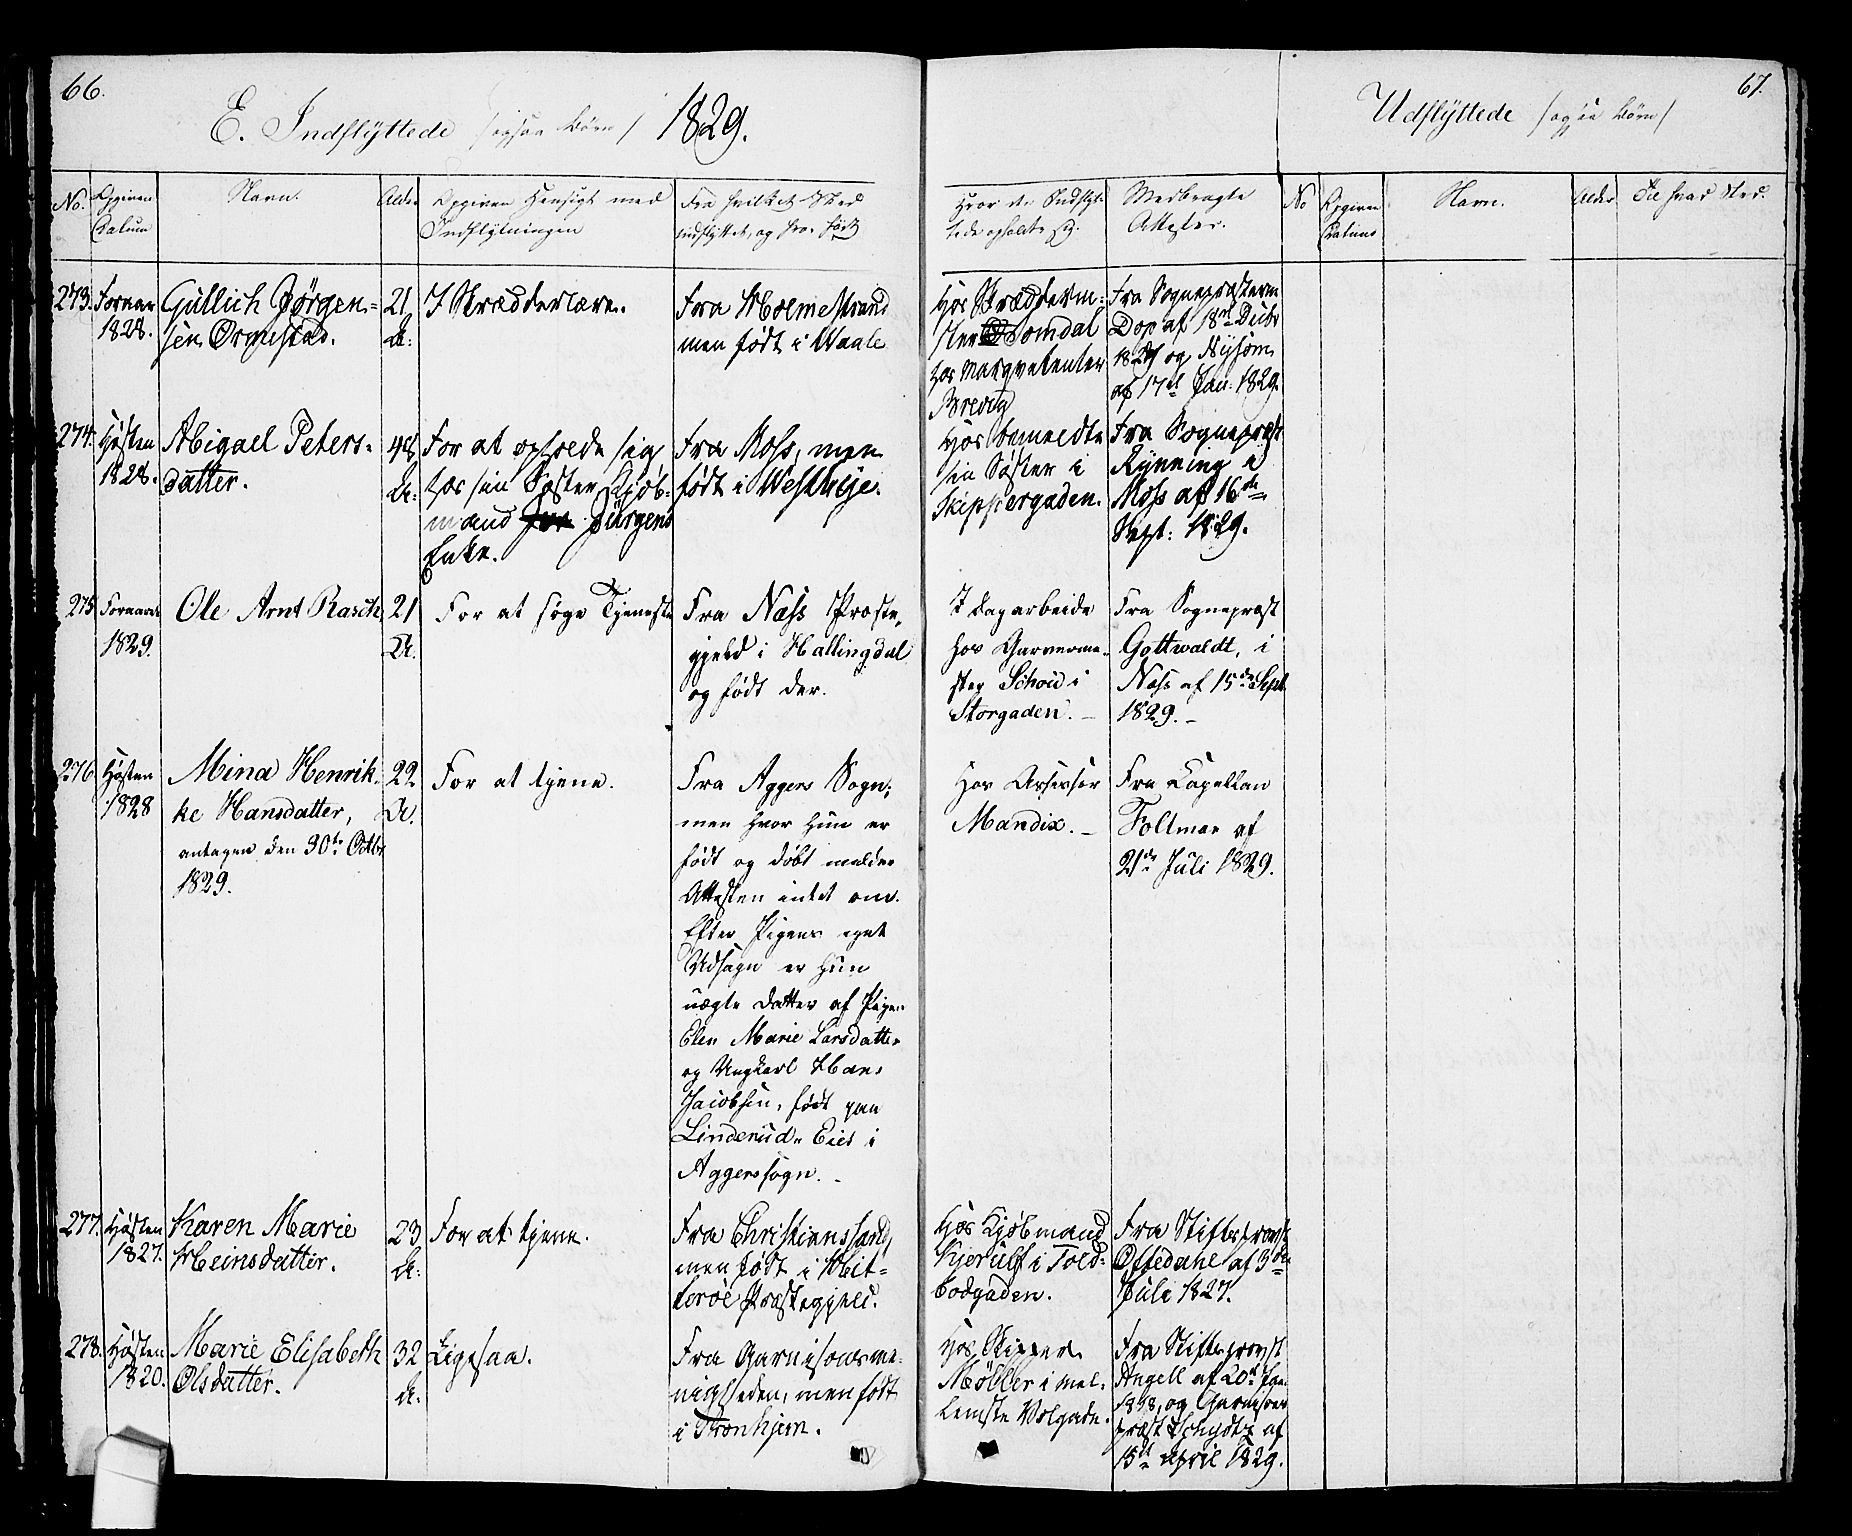 66.
E. Indflÿttede /ogsaa Børn/ 1829.
No.
Opgiven
Datum
Navn.
Alder
Opgiven Hensigt med
Indflytningen
Fra hvilket Sted
indflyttet, og hvor født
Hvor de Indflyt-
tede opholde sig.
Medbragte
Attester.
273.
1828.
Gullich Jørgen-
sen Ørgestad.
21
A:
I Skrædderlære.
Fra Holmestrand
men født i Waale
Hos Skrædderm-
ster Tomdal
hos Marqvetenter
Brevig
Fra Sognepræsterne
Dop af 18de Decbr
og Nysom
af 17de Jan. 1829.
274.
Høsten
1828.
Abigael Peters-
datter.
A:
For at opholde sig
hos sin Søster Kjøb-
mand Jürgens
Enke.
Fra Moss, men
født i
Hos bemeldte
sin Søster i
Skippergaden.
Fra Sognepræst
Rynning i
Moss af 16de
Sept: 1829.
275
Foraaret
1829.
Ole Arnt Rasch
21
A.
For at søge Tjeneste
Fra Næss Præste-
gjeld i Hallingdal
og født der.
I dagarbeide
hos Garverme-
ster Schou i
Storgaden. –
Fra Sognepræst
Gottwaldt, i
Næss af 15de Sept
1829. –
276
Høsten
1828
Mina Henrik-
ke Hansdatter,
antagen den 30te Octbr
1829.
22
A.
For at tjene.
Fra Aggers Sogn;
men hvor hun er
født og døbt melder
Attesten intet om.
Efter Pigens eget
Udsagn er hun
uægte Datter af Pigen
Elen Marie Larsdatter
og Ungkarl Hans
Jacobsen, født paa
Linderud Eier i
Aggerssogn. –
Hos Assessor
Mandix. –
Fra Capellan
Foltmar af
21de Juli 1829.
277.
Høsten
1827.
Karen Marie
Heinsdatter.
23
A:
For at tjene.
Fra Christianssand,
men født i Hit-
terøe Præstegjeld.
Hos Kjøbmand
Kjerulf i Told-
bodgaden.
Fra Stiftsprovst
Oftedahl af 3die
Juli 1827.
278.
Høsten
1820.
Marie Elisabeth
Olsdatter.
32
A:
Ligesaa.
Fra Garnisonsme-
nigheden, men født
i Tronhjem.
Hos Skipper
Møller i Mel-
lemste Volgade.
Fra Stiftsprovst
Angell af 20de Jan.
1818, og Garnisons
præst af
15de April 1829.
67.
Udflÿttede /ogsaa Børn/
No
Opgiven
Datum
Navn.
Alder
Til hvad Sted.